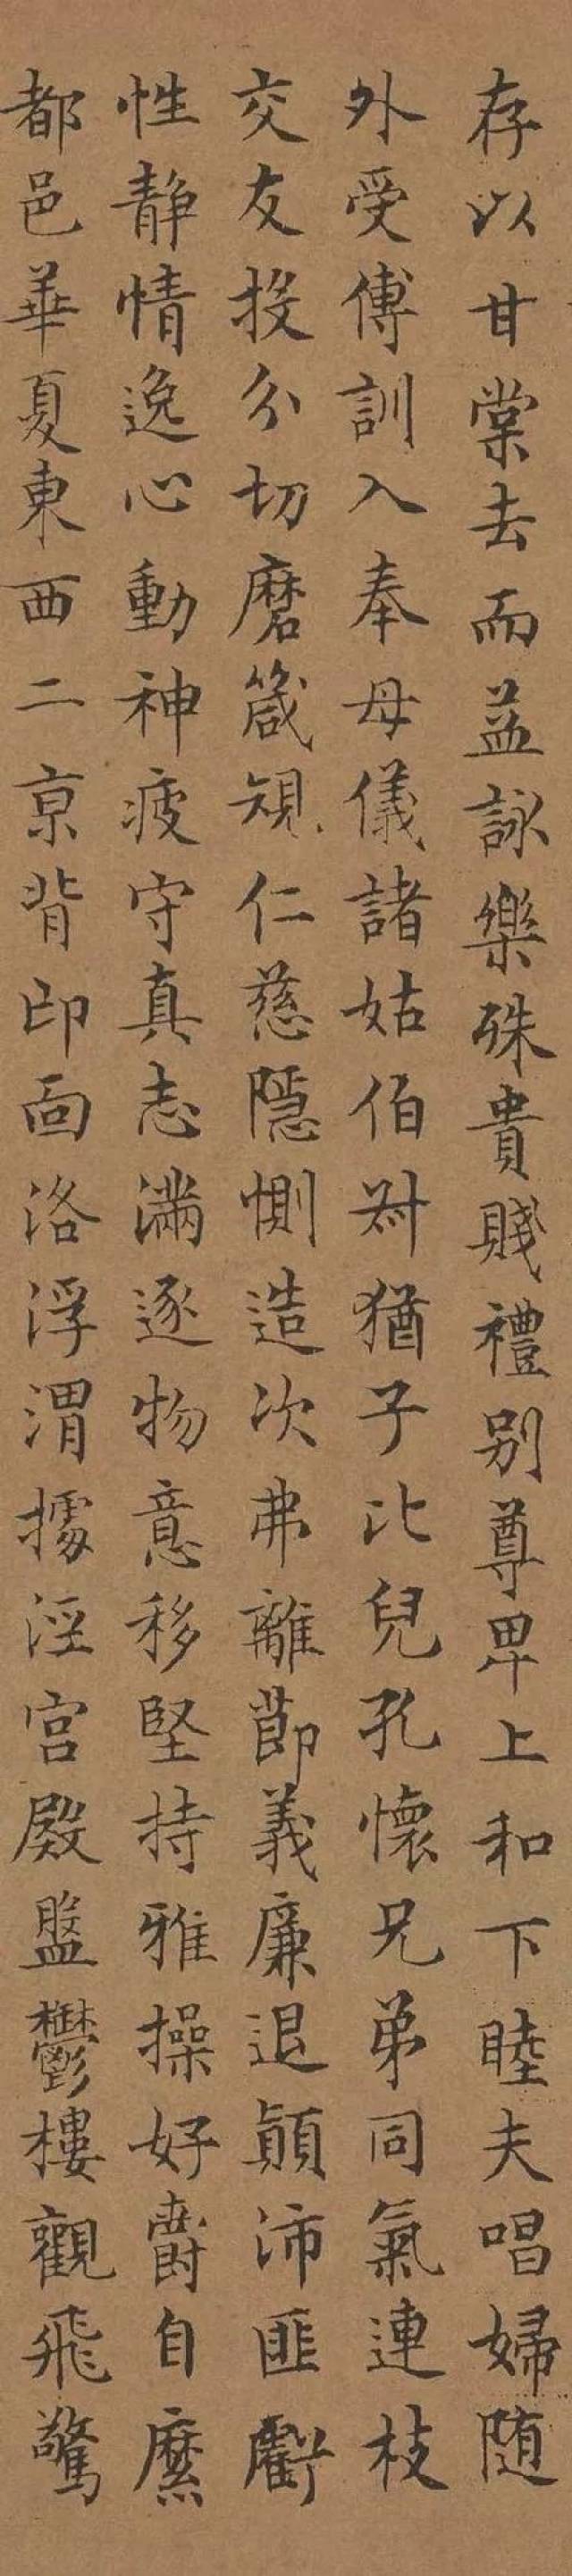 存以甘棠去而益詠樂殊貴賤禮別尊卑上和下睦夫唱婦随
外受傅訓入奉母儀諸姑伯叔猶子比兒孔懷兄弟同氣連枝
交友投分切磨箴規仁慈隱惻造次弗離節義廉退顛沛匪虧
性静情逸心動神疲守真志滿逐物意移堅持雅操好爵自縻
都邑華夏東西二京背邙面洛浮渭據涇宮殿盤鬱樓觀飛驚